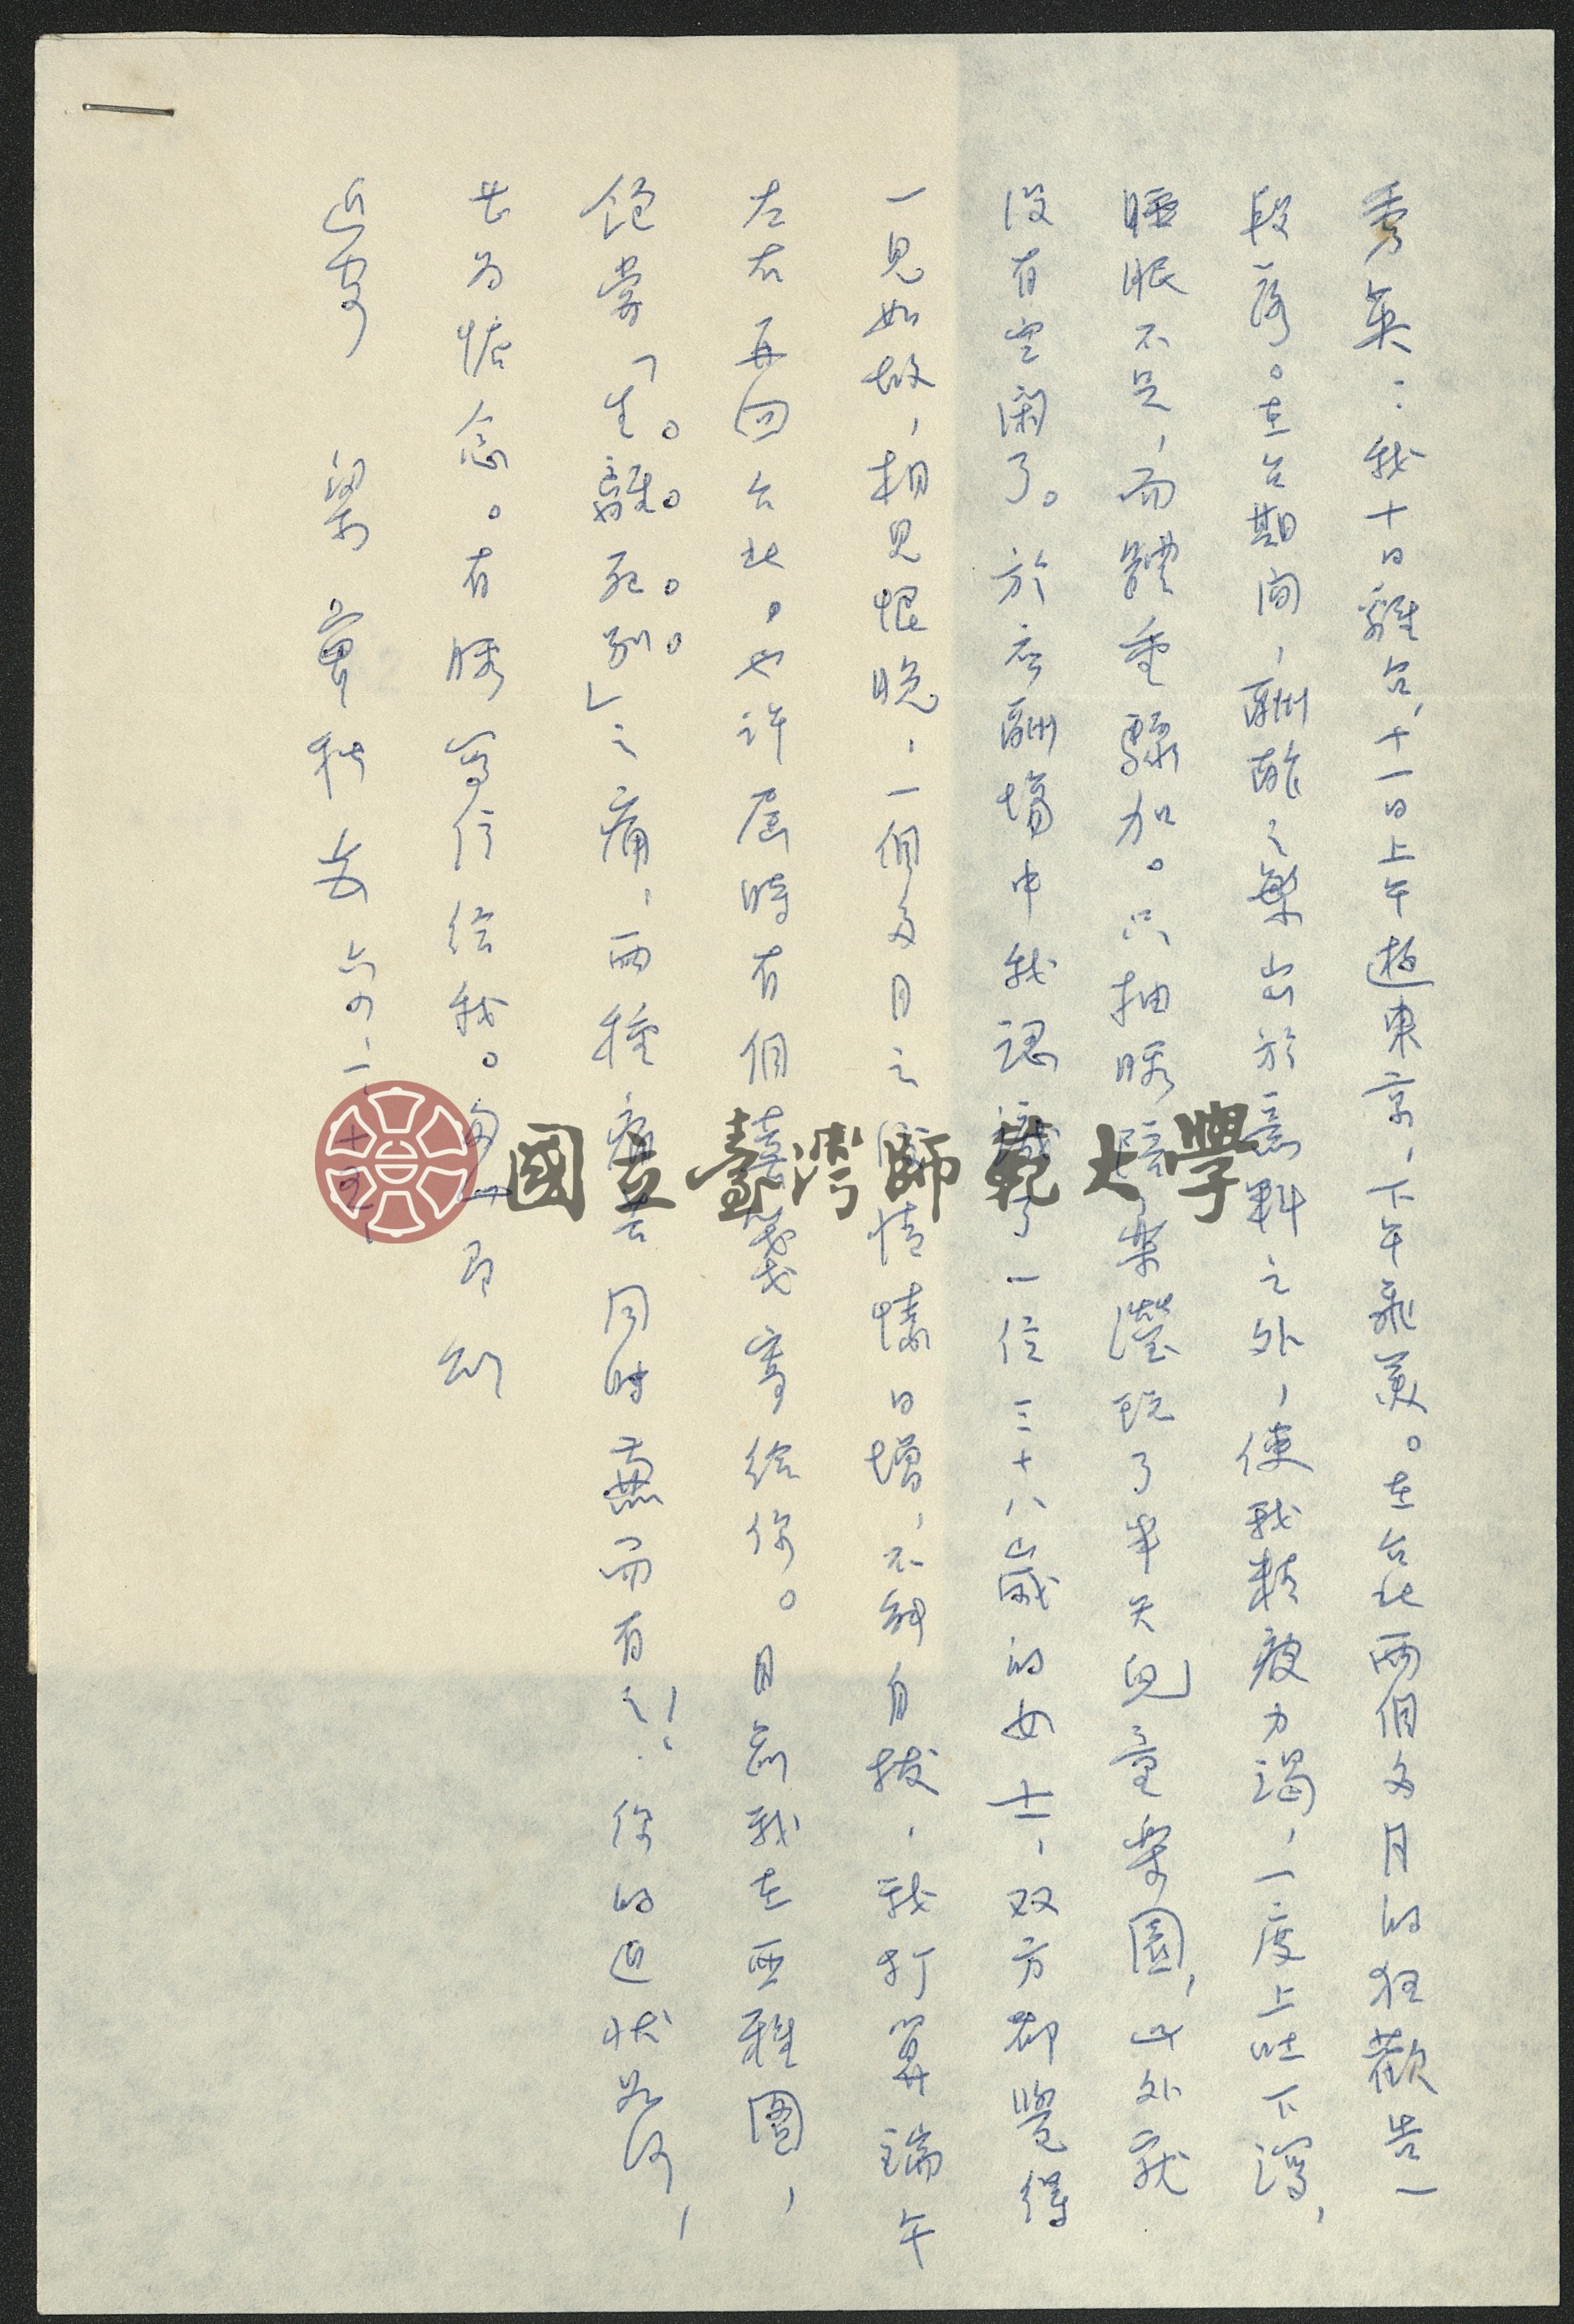 秀英：我十日離台，十一日上午遊東京，下午飛美。在台北兩個多月的狂歡告一
段落。在台期間，酬酢之繁出於意料之外，使我精疲力竭，一度上吐下瀉，
睡眠不足，而體重驟加。只抽暇陪樂瀅玩了半天兒童樂園，此外就
沒有空閑了。於應酬場中我認識了一位三十八歲的女士，双方都覺得
一見如故，相見恨晚，一個多月之 情愫日增，不能自拔，我打算端午
左右再回台北。也許屆時有個喜 寄給你。目前我在西雅圖，
飽嘗「生離死別」之痛，兩種 同時兼而有之！你的近狀如何，
甚為惦念。有暇寫信給我。 即祝
近好 實秋 六四、一、
國立臺灣師範大學